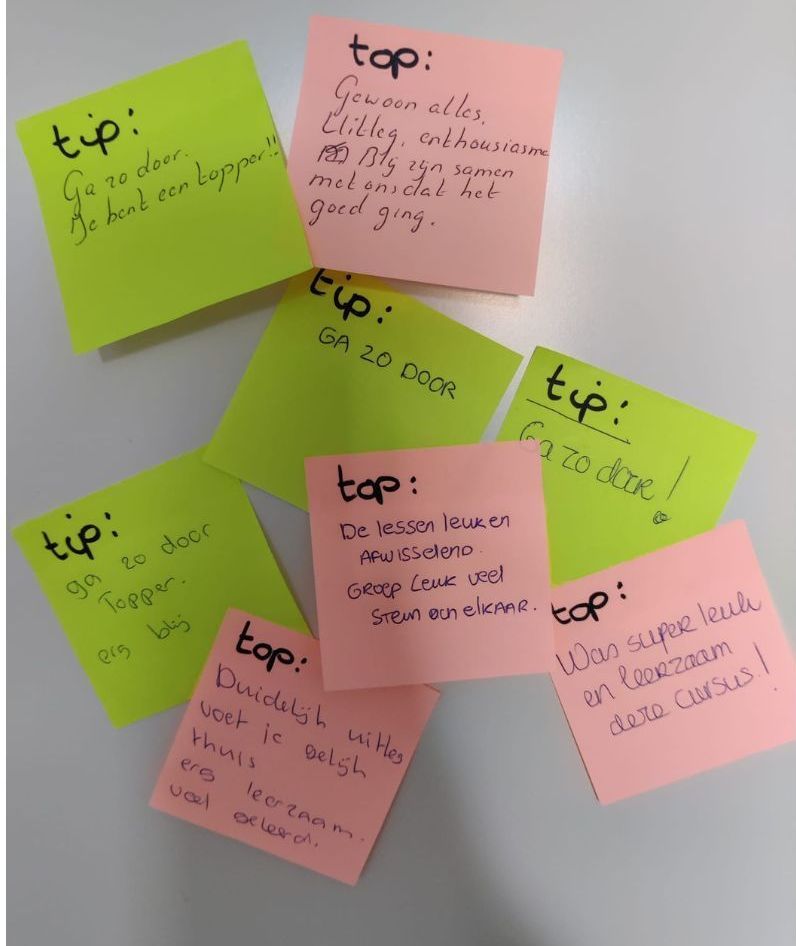 tip:
Ga zo door.
Je bent een topper!!
top:
Gewoon alles,
Uitleg, enthousiasme
Blij zijn samen
met ons dat het
goed ging.
tip:
GA ZO DOOR
tip:
Ga zo door!
tip:
ga zo door
Topper.
erg blij
top:
De lessen leuk en
Afwisselend.
Groep Leuk veel
Steun aan elkaar.
top:
Was super leuk
en leerzaam
deze cursus!
top:
Duidelijk uitleg
voel je gelijk
thuis
erg leerzaam.
veel geleerd.